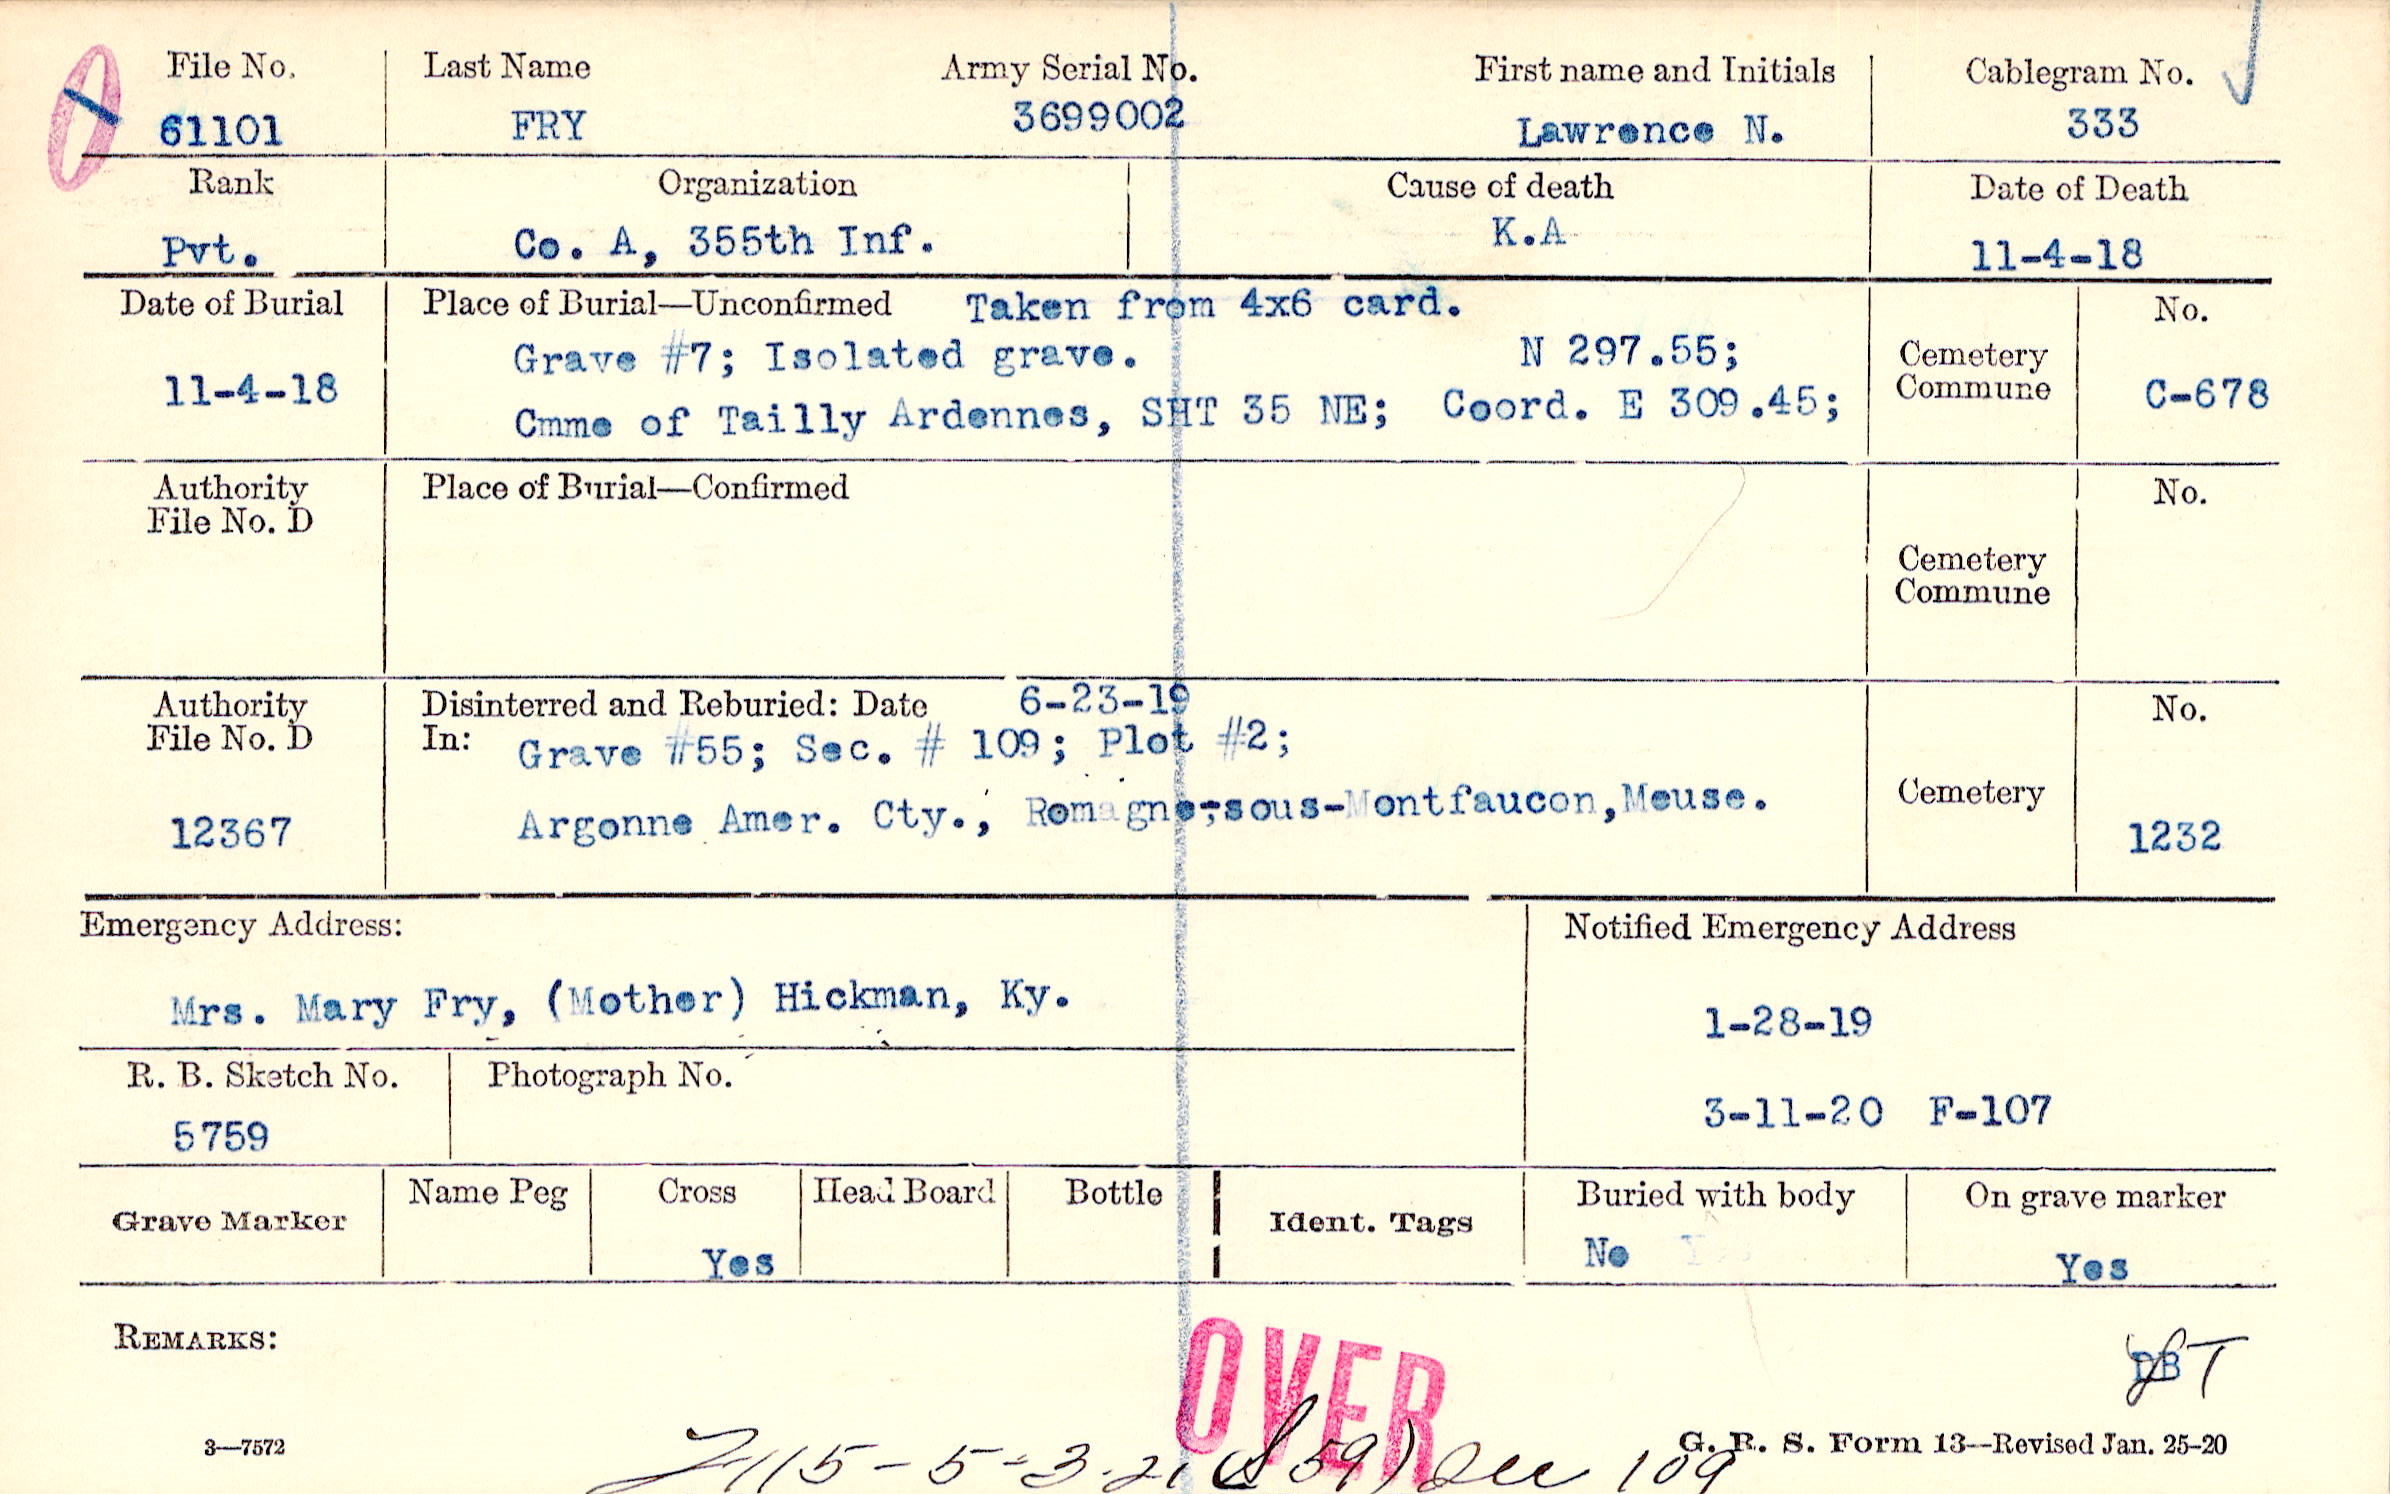 File No. Last Name Army Serial No. First name and Initials Cablegram No.
61101 FRY 3699002 Lawrence N. 333
Rank Organization Cause of death Date of Death
Pvt. Co. A, 355th Inf. K.A 11-4-18
Date of Burial Place of Burial—Unconfirmed Taken from 4x6 card. No.
Grave #7; Isolated grave. N 297.55; Cemetery
11-4-18 Commune C-678
Cmme of Tailly Ardennes, SHT 35 NE; Coord. E 309.45;
Authority Place of Burial—Confirmed No.
File No. D
Cemetery
Commune
Authority Disinterred and Reburied: Date 6-23-19 No.
File No. D In: Grave #55; Sec. # 109; Plot #2;
Cemetery
12367 Argonne Amer. Cty., Romagne-sous-Montfaucon,Meuse. 1232
Emergency Address: Notified Emergency Address
Mrs. Mary Fry, (Mother) Hickman, Ky. 1-28-19
R. B. Sketch No. Photograph No.
5759 3-11-20 F-107
Grave Marker Name Peg Cross Head Board Bottle Ident. Tags Buried with body On grave marker
Yes No Yes
REMARKS:
OVER
DB
3—7572 G. R. S. Form 13—Revised Jan. 25-20
115-5-3-21 109